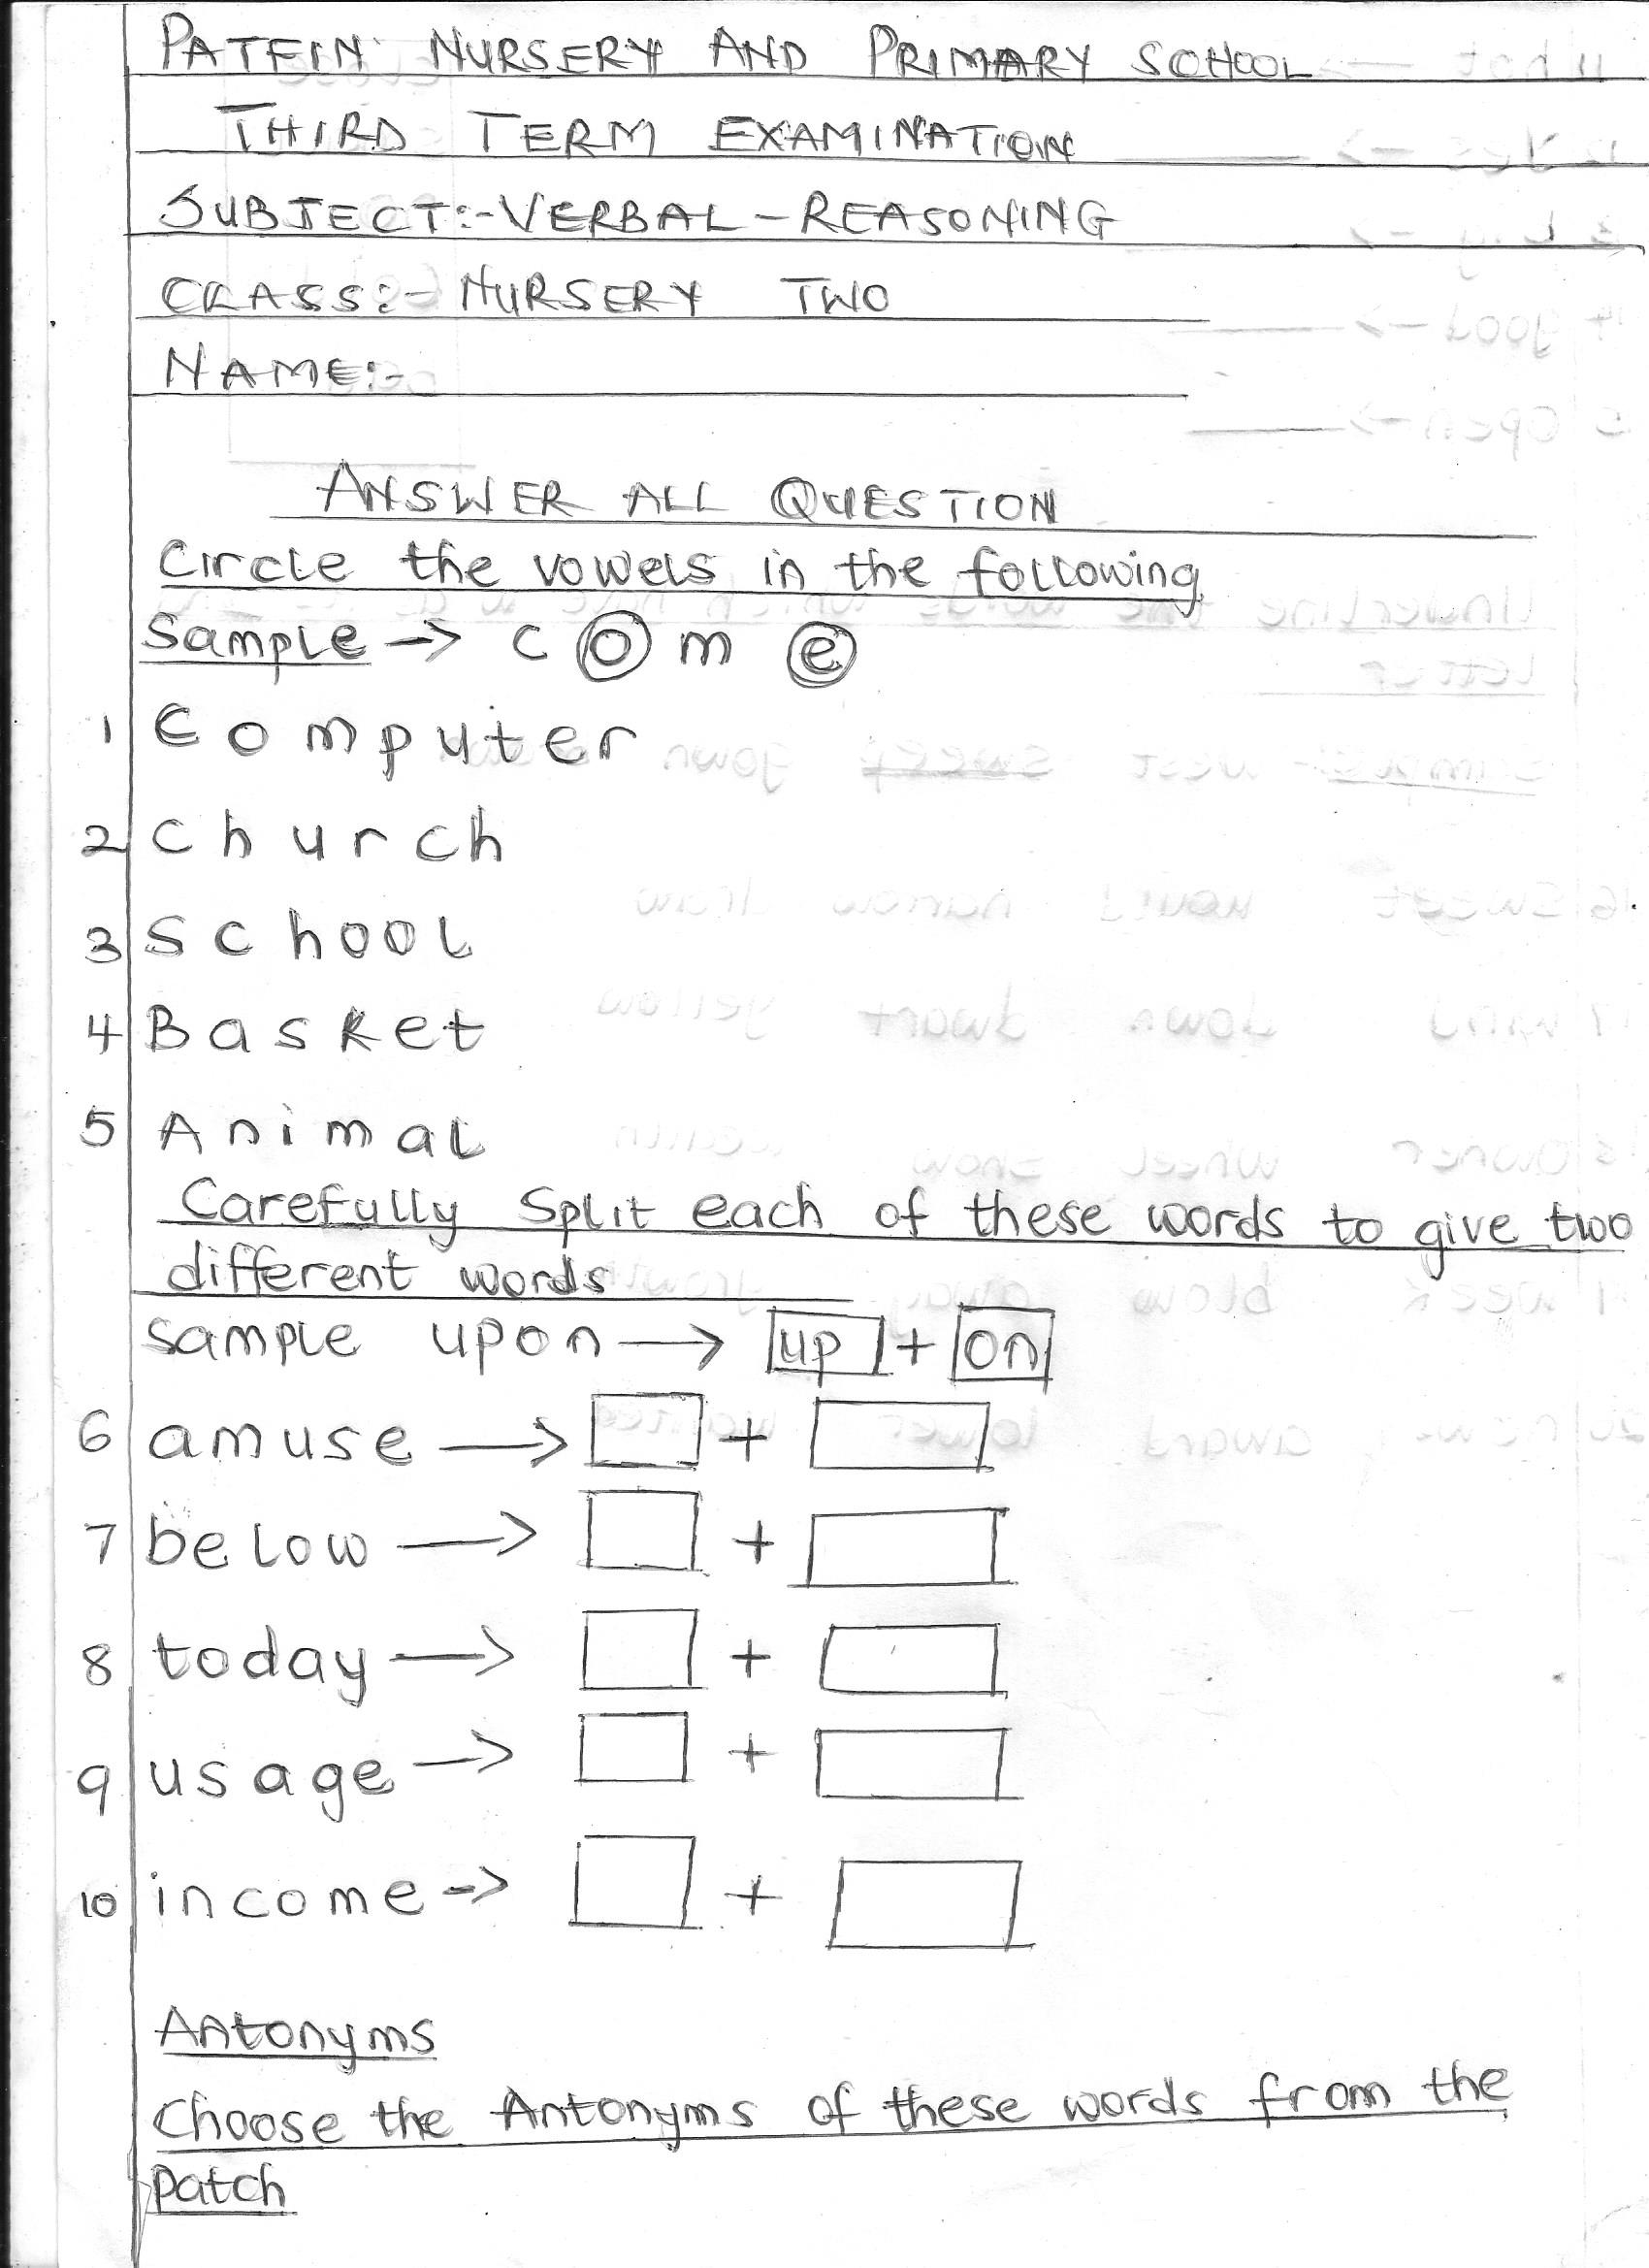 PATFIN NURSERY AND PRIMARY SCHOOL
THIRD TERM EXAMINATION
SUBJECT:-VERBAL-REASONING
CLASS:- NURSERY TWO
NAME:-
ANSWER ALL QUESTION
Circle the vowels in the following
Sample -> c o m e
1 Computer
2 church
3 School
4 Basket
5 Animal
Carefully Split each of these words to give two
different words
sample upon -> up + on
6 amuse -> +
7 below -> +
8 today -> +
9 usage -> +
10 income -> +
Antonyms
Choose the Antonyms of these words from the
Patch